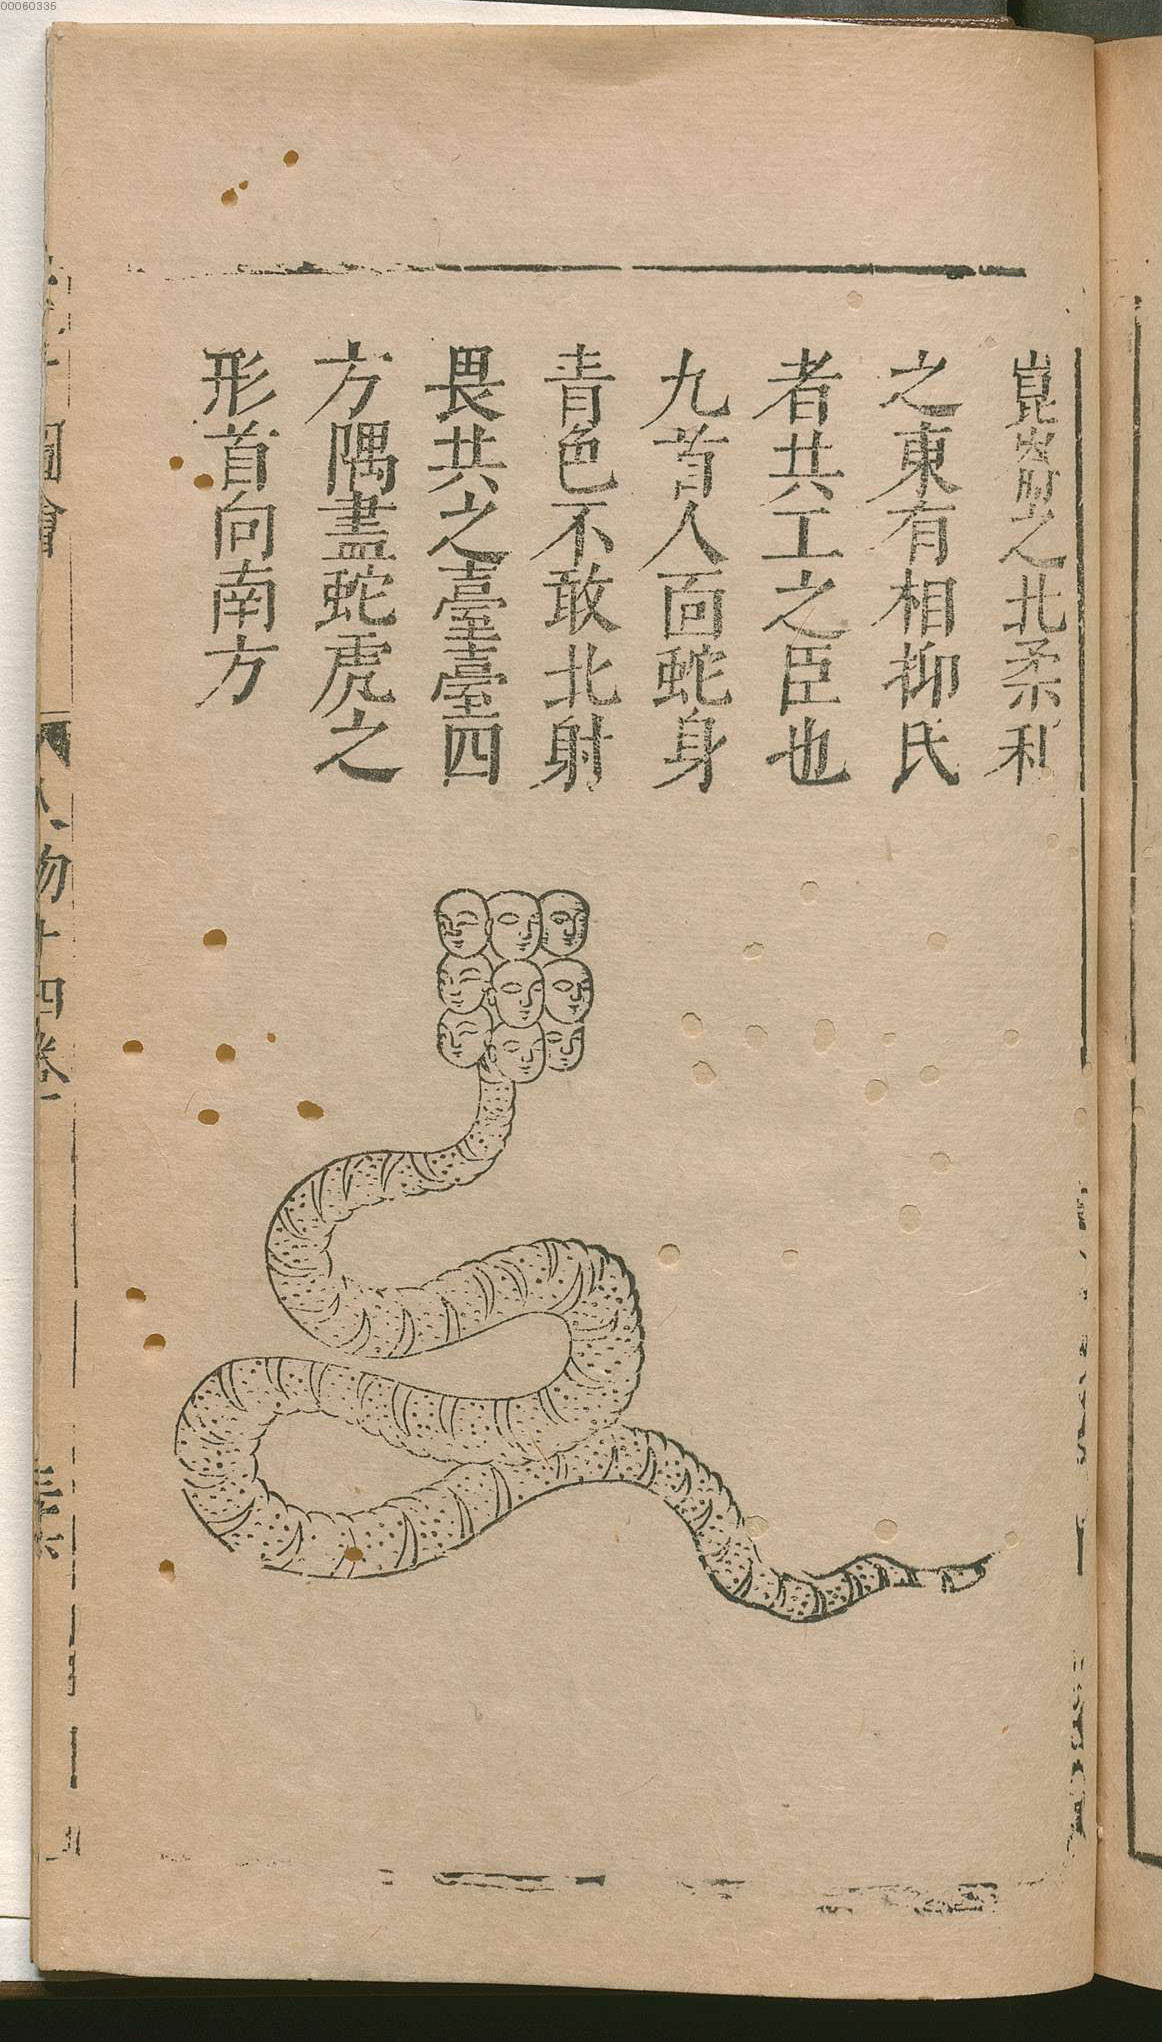 00060335
崑崙之北柔利
之東有相抑氏
者共工之臣也
九首人面蛇身
青色不敢北射
畏共之臺臺四
方隅盡蛇虎之
形首向南方
圖會
人物十四卷
三十六